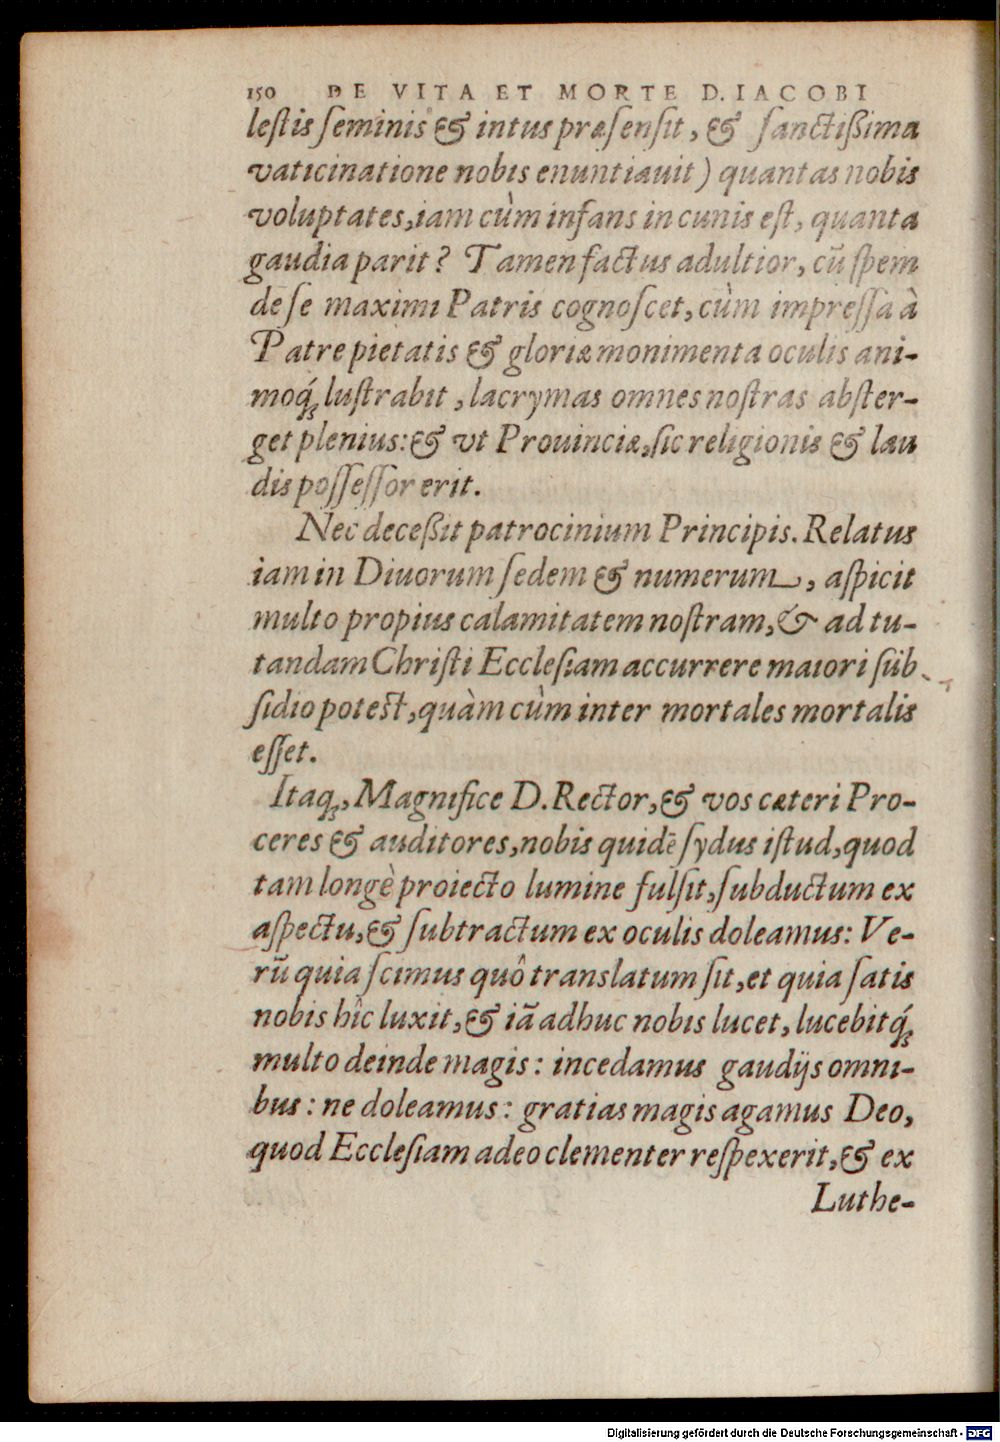 150 DE VITA ET MORTE D. IACOBI
leſtis ſeminis & intus præſenſit, & ſanctißima
vaticinatione nobis enuntiauit) quantas nobis
voluptates, iam cùm infans in cunis eſt, quanta
gaudia parit? Tamen factus adultior, cū ſpem
de ſe maximi Patris cognoſcet, cùm impreſſa à
Patre pietatis & gloriæ monimenta oculis ani-
moq́; luſtrabit, lacrymas omnes noſtras abſter-
get plenius: & vt Prouinciæ, ſic religionis & lau
dis poſſeſſor erit.
Nec deceßit patrocinium Principis. Relatus
iam in Diuorum ſedem & numerum, aſpicit
multo propius calamitatem noſtram, & ad tu-
tandam Chriſti Eccleſiam accurrere maiori ſub
ſidio poteſt, quàm cùm inter mortales mortalis
eſſet.
Itaq;, Magnifice D. Rector, & vos cæteri Pro-
ceres & auditores, nobis quidē ſydus iſtud, quod
tam longè proiecto lumine fulſit, ſubductum ex
aſpectu, & ſubtractum ex oculis doleamus: Ve-
rū quia ſcimus quô translatum ſit, et quia ſatis
nobis hîc luxit, & iā adhuc nobis lucet, lucebitq́;
multo deinde magis: incedamus gaudijs omni-
bus: ne doleamus: gratias magis agamus Deo,
quod Eccleſiam adeo clementer reſpexerit, & ex
Luthe-
Digitalisierung gefördert durch die Deutsche Forschungsgemeinschaft - DFG